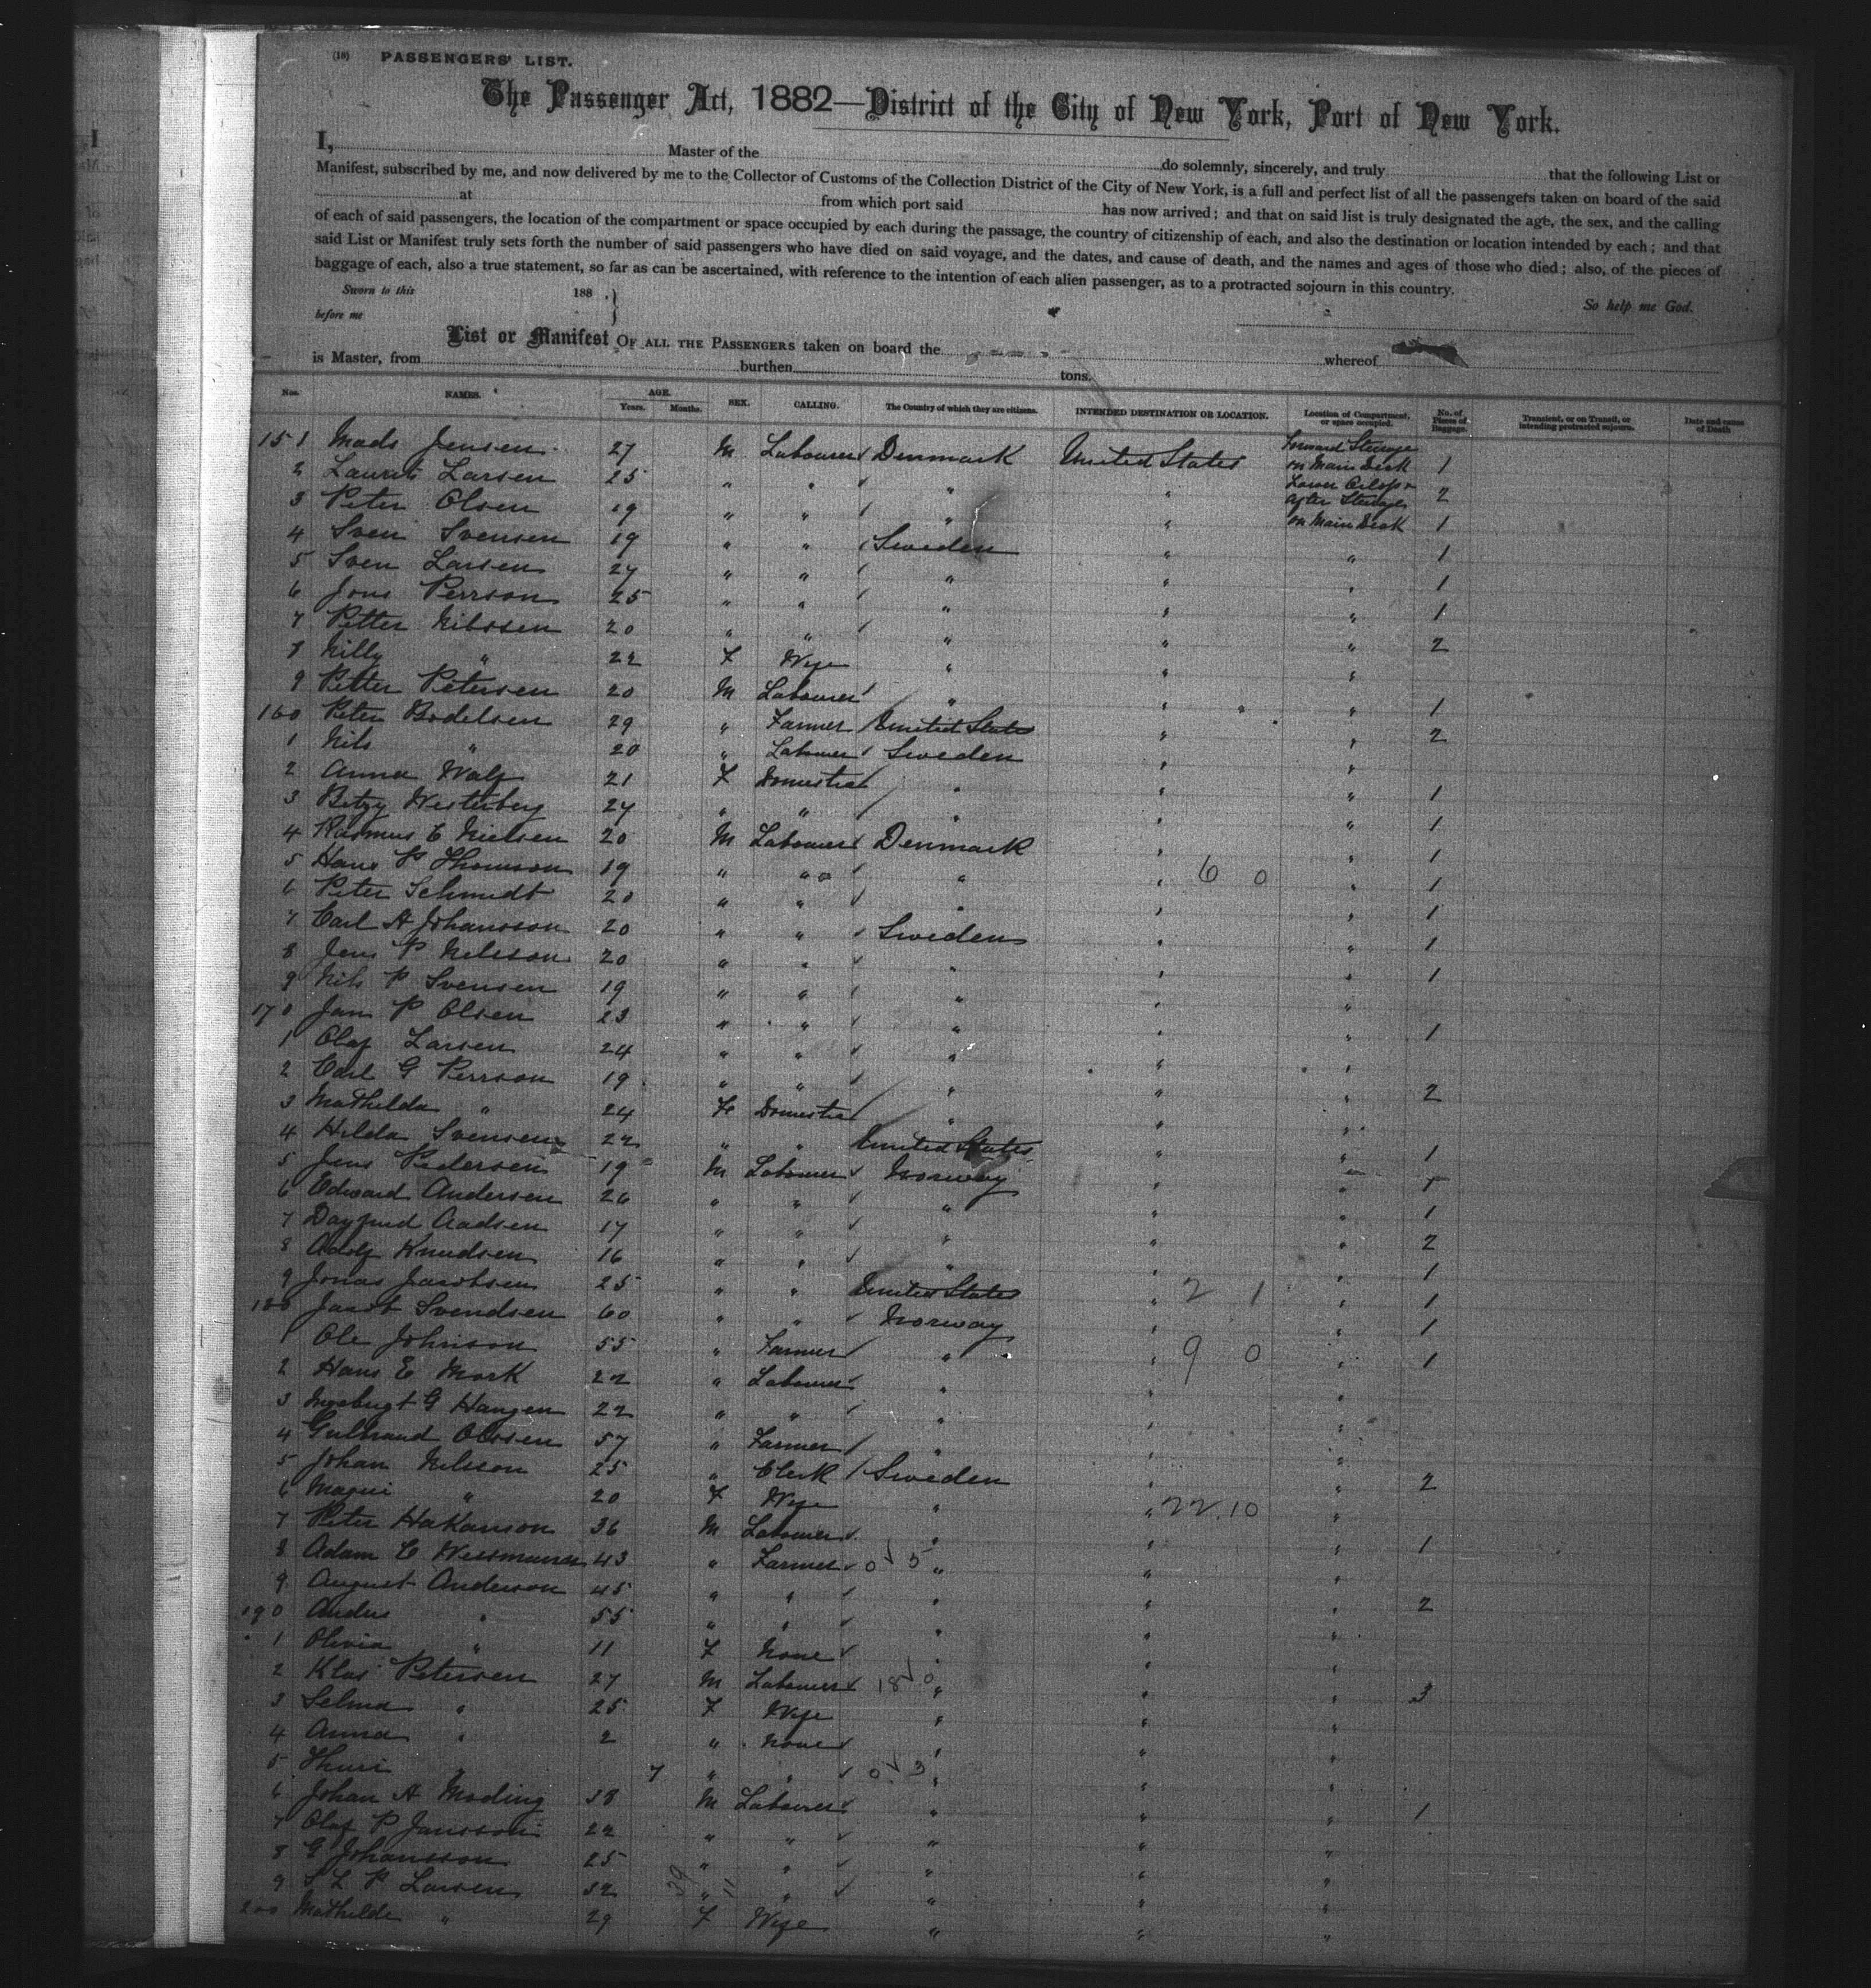 (18) PASSENGERS' LIST.
The Passenger Act, 1882—District of the City of New York, Port of New York.
I, Master of the do solemnly, sincerely, and truly that the following List or
Manifest, subscribed by me, and now delivered by me to the Collector of Customs of the Collection District of the City of New York, is a full and perfect list of all the passengers taken on board of the said
at from which port said has now arrived; and that on said list is truly designated the age, the sex, and the calling
of each of said passengers, the location of the compartment or space occupied by each during the passage, the country of citizenship of each, and also the destination or location intended by each; and that
said List or Manifest truly sets forth the number of said passengers who have died on said voyage, and the dates, and cause of death, and the names and ages of those who died; also, of the pieces of
baggage of each, also a true statement, so far as can be ascertained, with reference to the intention of each alien passenger, as to a protracted sojourn in this country.
Sworn to this 188 . } So help me God.
before me
List or Manifest OF ALL THE PASSENGERS taken on board the whereof
is Master, from burthen tons.
Nos. NAMES. AGE. Years. Months. SEX. CALLING. The Country of which they are citizens. INTENDED DESTINATION OR LOCATION. Location of Compartment, or space occupied. No. of Pieces of Baggage. Transient, or on Transit, or intending protracted sojourn. Date and cause of Death
151 Mads Jensen 27 M Labourer Denmark United States Forward Steerage on Main Deck 1
2 Laurits Larsen 25 " " " " Lower Orlop & After Steerage 2
3 Peter Olsen 19 " " " " on Main Deck 1
4 Sven Svensen 19 " " Sweden " " 1
5 Sven Larsen 27 " " " " " 1
6 Jons Persson 25 " " " " " 1
7 Petter Nilssen 20 " " " " " 2
8 Nilly " 22 F Wife " " "
9 Petter Petersen 20 M Labourer " " " 1
160 Peter Bodelsen 29 " Farmer United States " " 2
1 Nils " 20 " Labourer Sweden " "
2 Anna Walf 21 F Domestic " " " 1
3 Betzy Westerberg 27 " " " " " 1
4 Rasmus C Nielsen 20 M Labourer Denmark " " 1
5 Hans P Thomson 19 " " " " 6 0 " 1
6 Peter Schmidt 20 " " " " " 1
7 Carl A Johansson 20 " " Sweden " " 1
8 Jens P Nilsson 20 " " " " " 1
9 Nils P Svensen 19 " " " " "
170 Jam P Olsen 23 " " " " " 1
1 Olaf Larsen 24 " " " " "
2 Carl G Persson 19 " " " " " 2
3 Mathilda " 24 Fe Domestic " " "
4 Hilda Svensen 22 " " United States " " 1
5 Jens Pedersen 19 M Labourer Norway " " 1
6 Edward Andersen 26 " " " " " 1
7 Dagfind Aadsen 17 " " " " " 2
8 Adolf Knudsen 16 " " " " " 1
9 Jonas Jacobsen 25 " " United States " 2 1 " 1
180 Jacob Svendsen 60 " " Norway " " 1
1 Ole Johnson 55 " Farmer " " 9 0 " 1
2 Hans E Mork 22 " Labourer " " "
3 G Hangen 22 " " " " "
4 Gulbrand Olssen 57 " Farmer " " "
5 Johan Nilsson 25 " Clerk Sweden " " 2
6 " 20 F Wife " " 22.10 "
7 Peter Hakanson 36 M Labourer " " " 1
8 Adam C Wessmann 43 " Farmer 0 5 " " "
9 August Anderson 45 " " " " " 2
190 Anders " 55 " " " " "
1 Olivia " 11 F None " " "
2 Klas Petersen 27 M Labourer 18 0 " " " 3
3 Selma " 25 F Wife " " "
4 Anna " 2 " None " " "
5 Thuri " 7 " " 0 3 " " "
6 Johan A Moding 38 M Labourer " " " 1
7 Olaf P Jansson 22 " " " " "
8 G Johansson 25 " " " " "
9 S L P Larsen 32 39 " 11 " " " "
200 Mathilde " 29 F Wife " " "